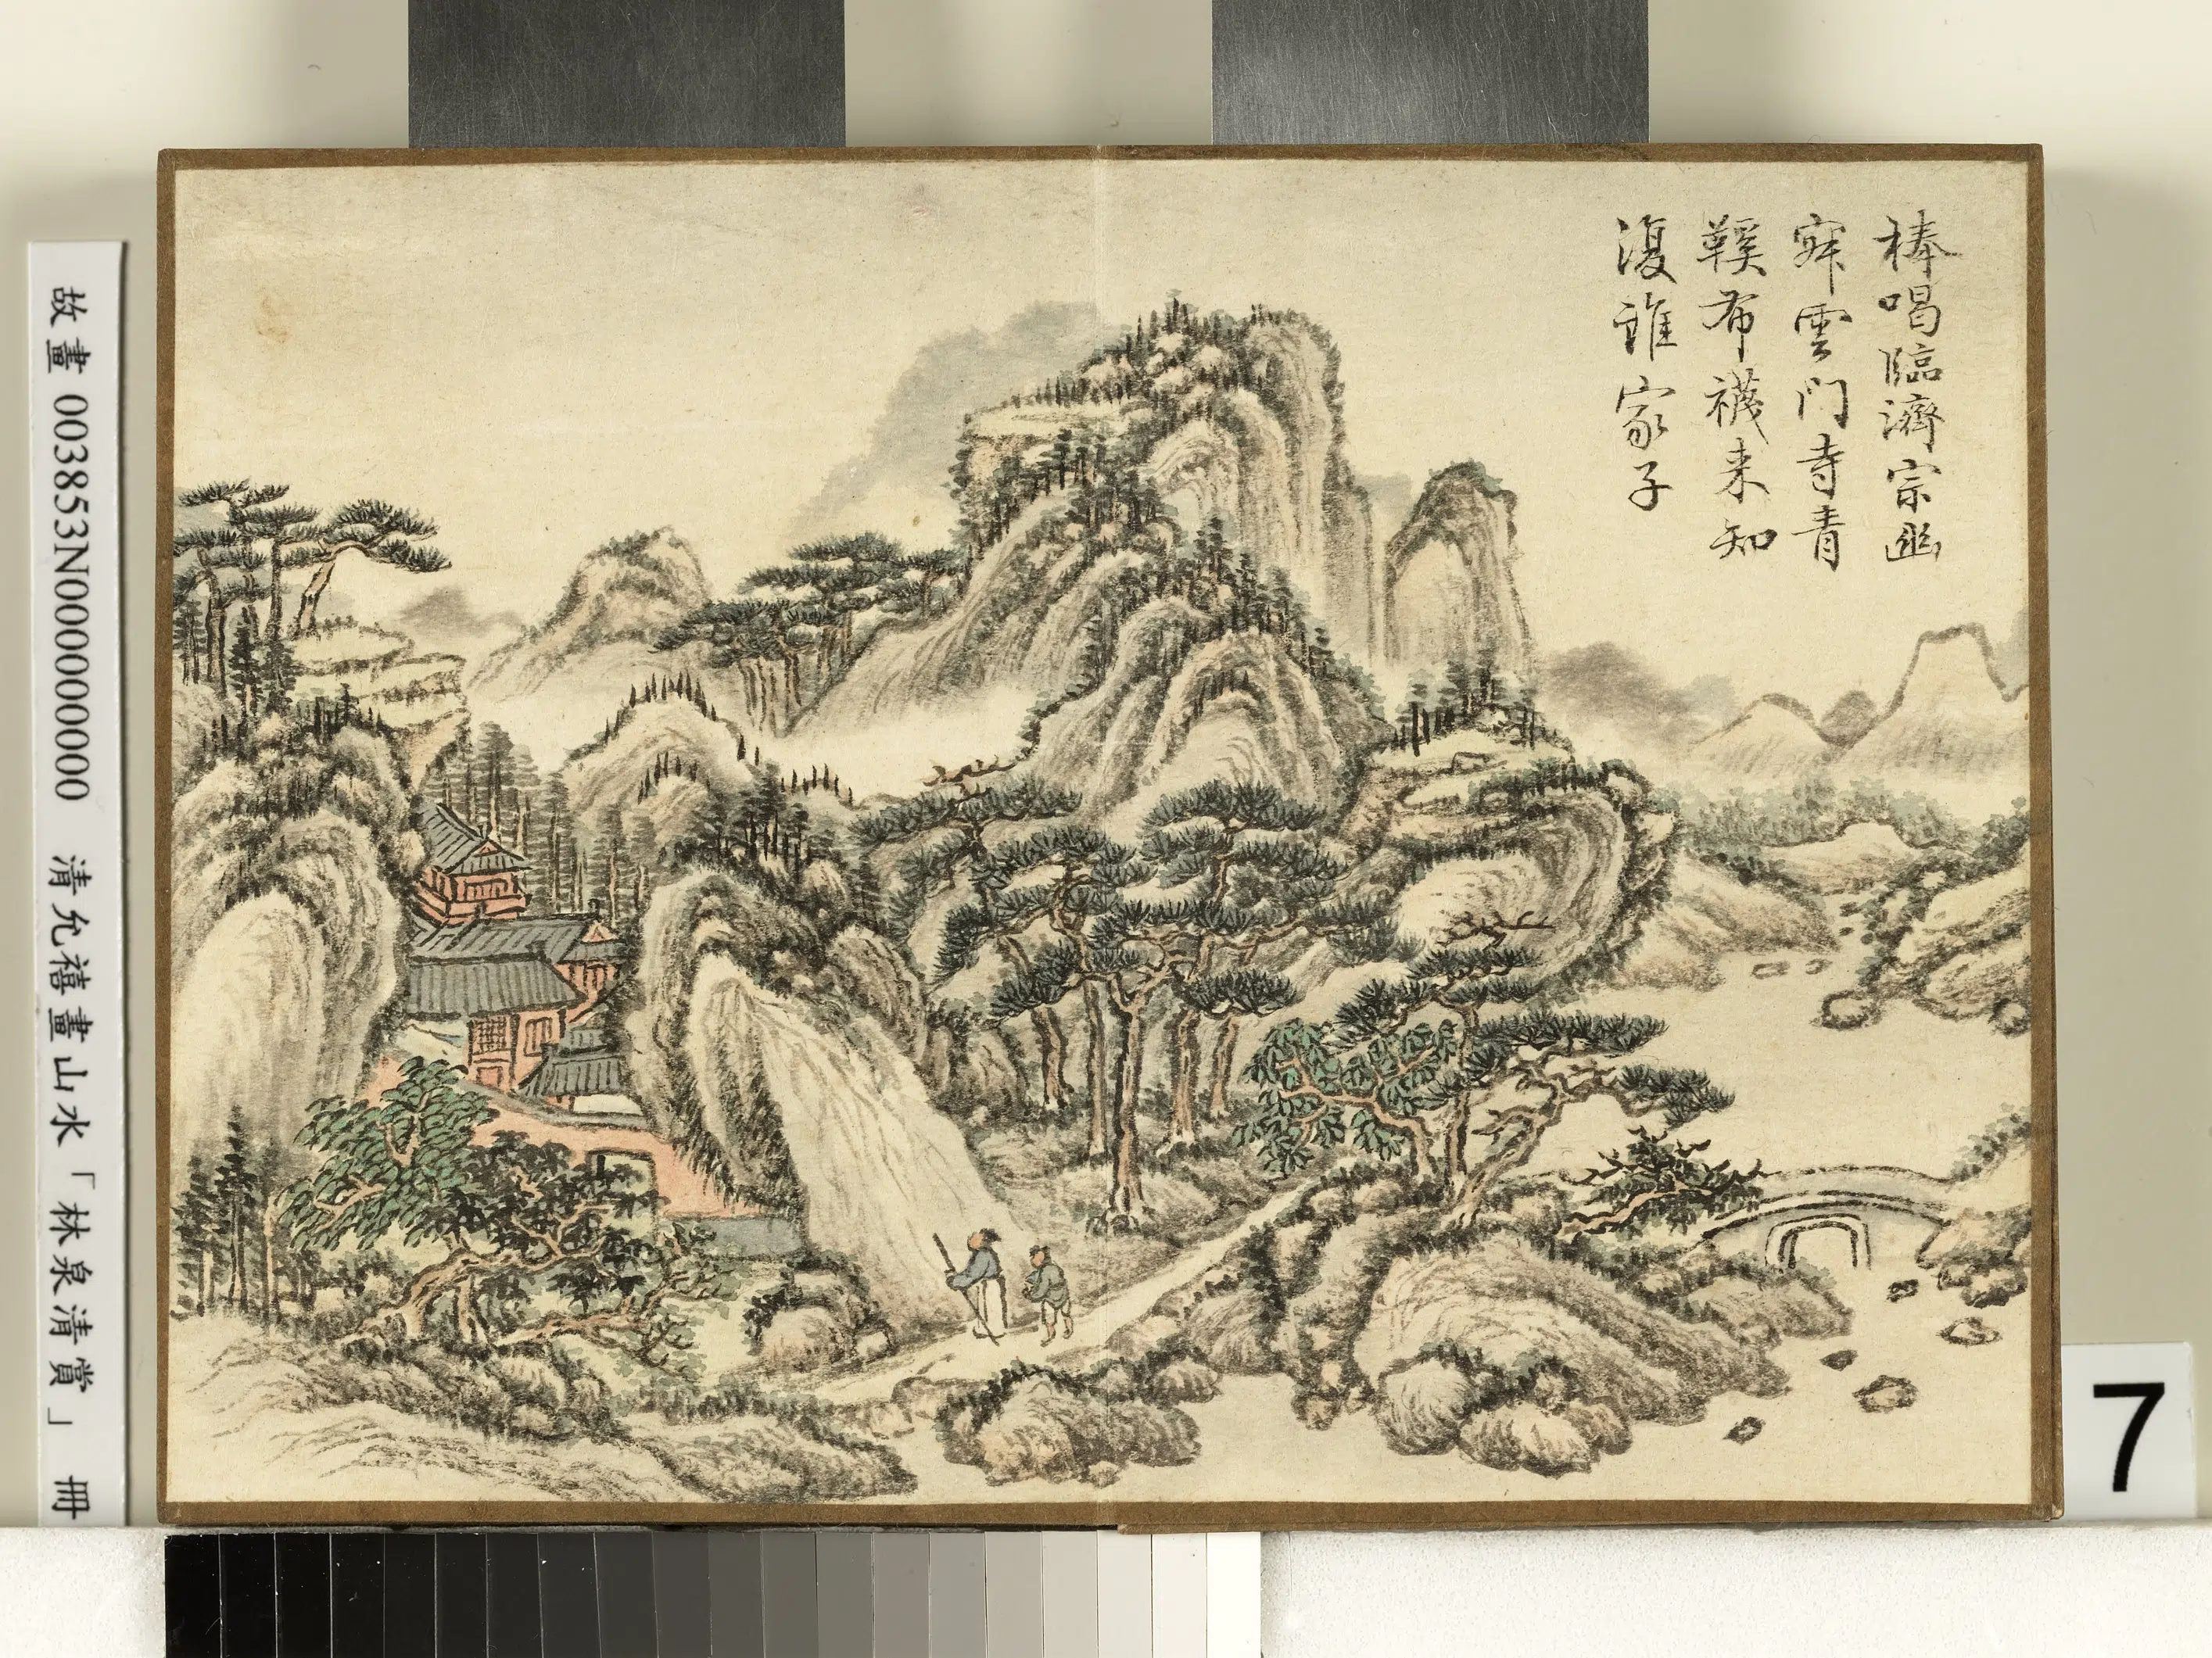 棒喝臨濟宗幽
寂雲門寺青
鞵布襪来知
復誰家子
故畫 003853N000000000 清允禧畫山水「林泉清賞」 冊
7